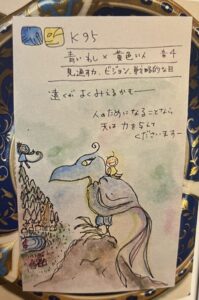 K95
青いわし × 黄色い人 音4
見通す力、ビジョン、戦略的な目
遠くが よくみえるかもー
人のためになることなら
天は 力を与えて
くださいますー